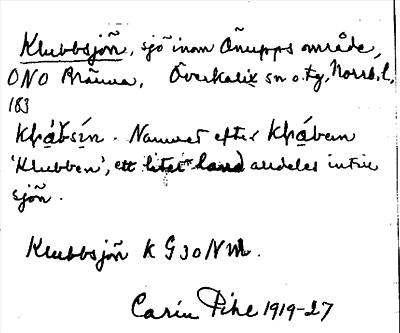 Klubbsjön̄, sjö inom Ön̄upps område,
ONO Bränna, Överkalix sn o. tg, Norrb. l,
183
Kḷḁ́bsín. Namnet efter Kḷḁ́ben
'Klubben', ett litet land alldeles intill
sjön̄.
Klubbsjön̄ K G 30 NM.
Carin Pihl 1919-27